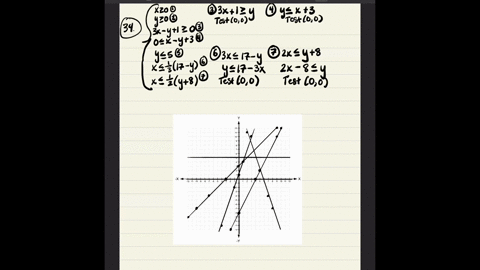 34.
x≥0 ①
y≥0 ②
3x-y+1≥0 ③
0≤x-y+3 ④
y≤5 ⑤
x≤⅓(17-y) ⑥
x≤½(y+8) ⑦
③ 3x+1≥y
Test (0,0)
④ y≤x+3
Test (0,0)
⑥ 3x≤17-y
y≤17-3x
Test (0,0)
⑦ 2x≤y+8
2x-8≤y
Test (0,0)